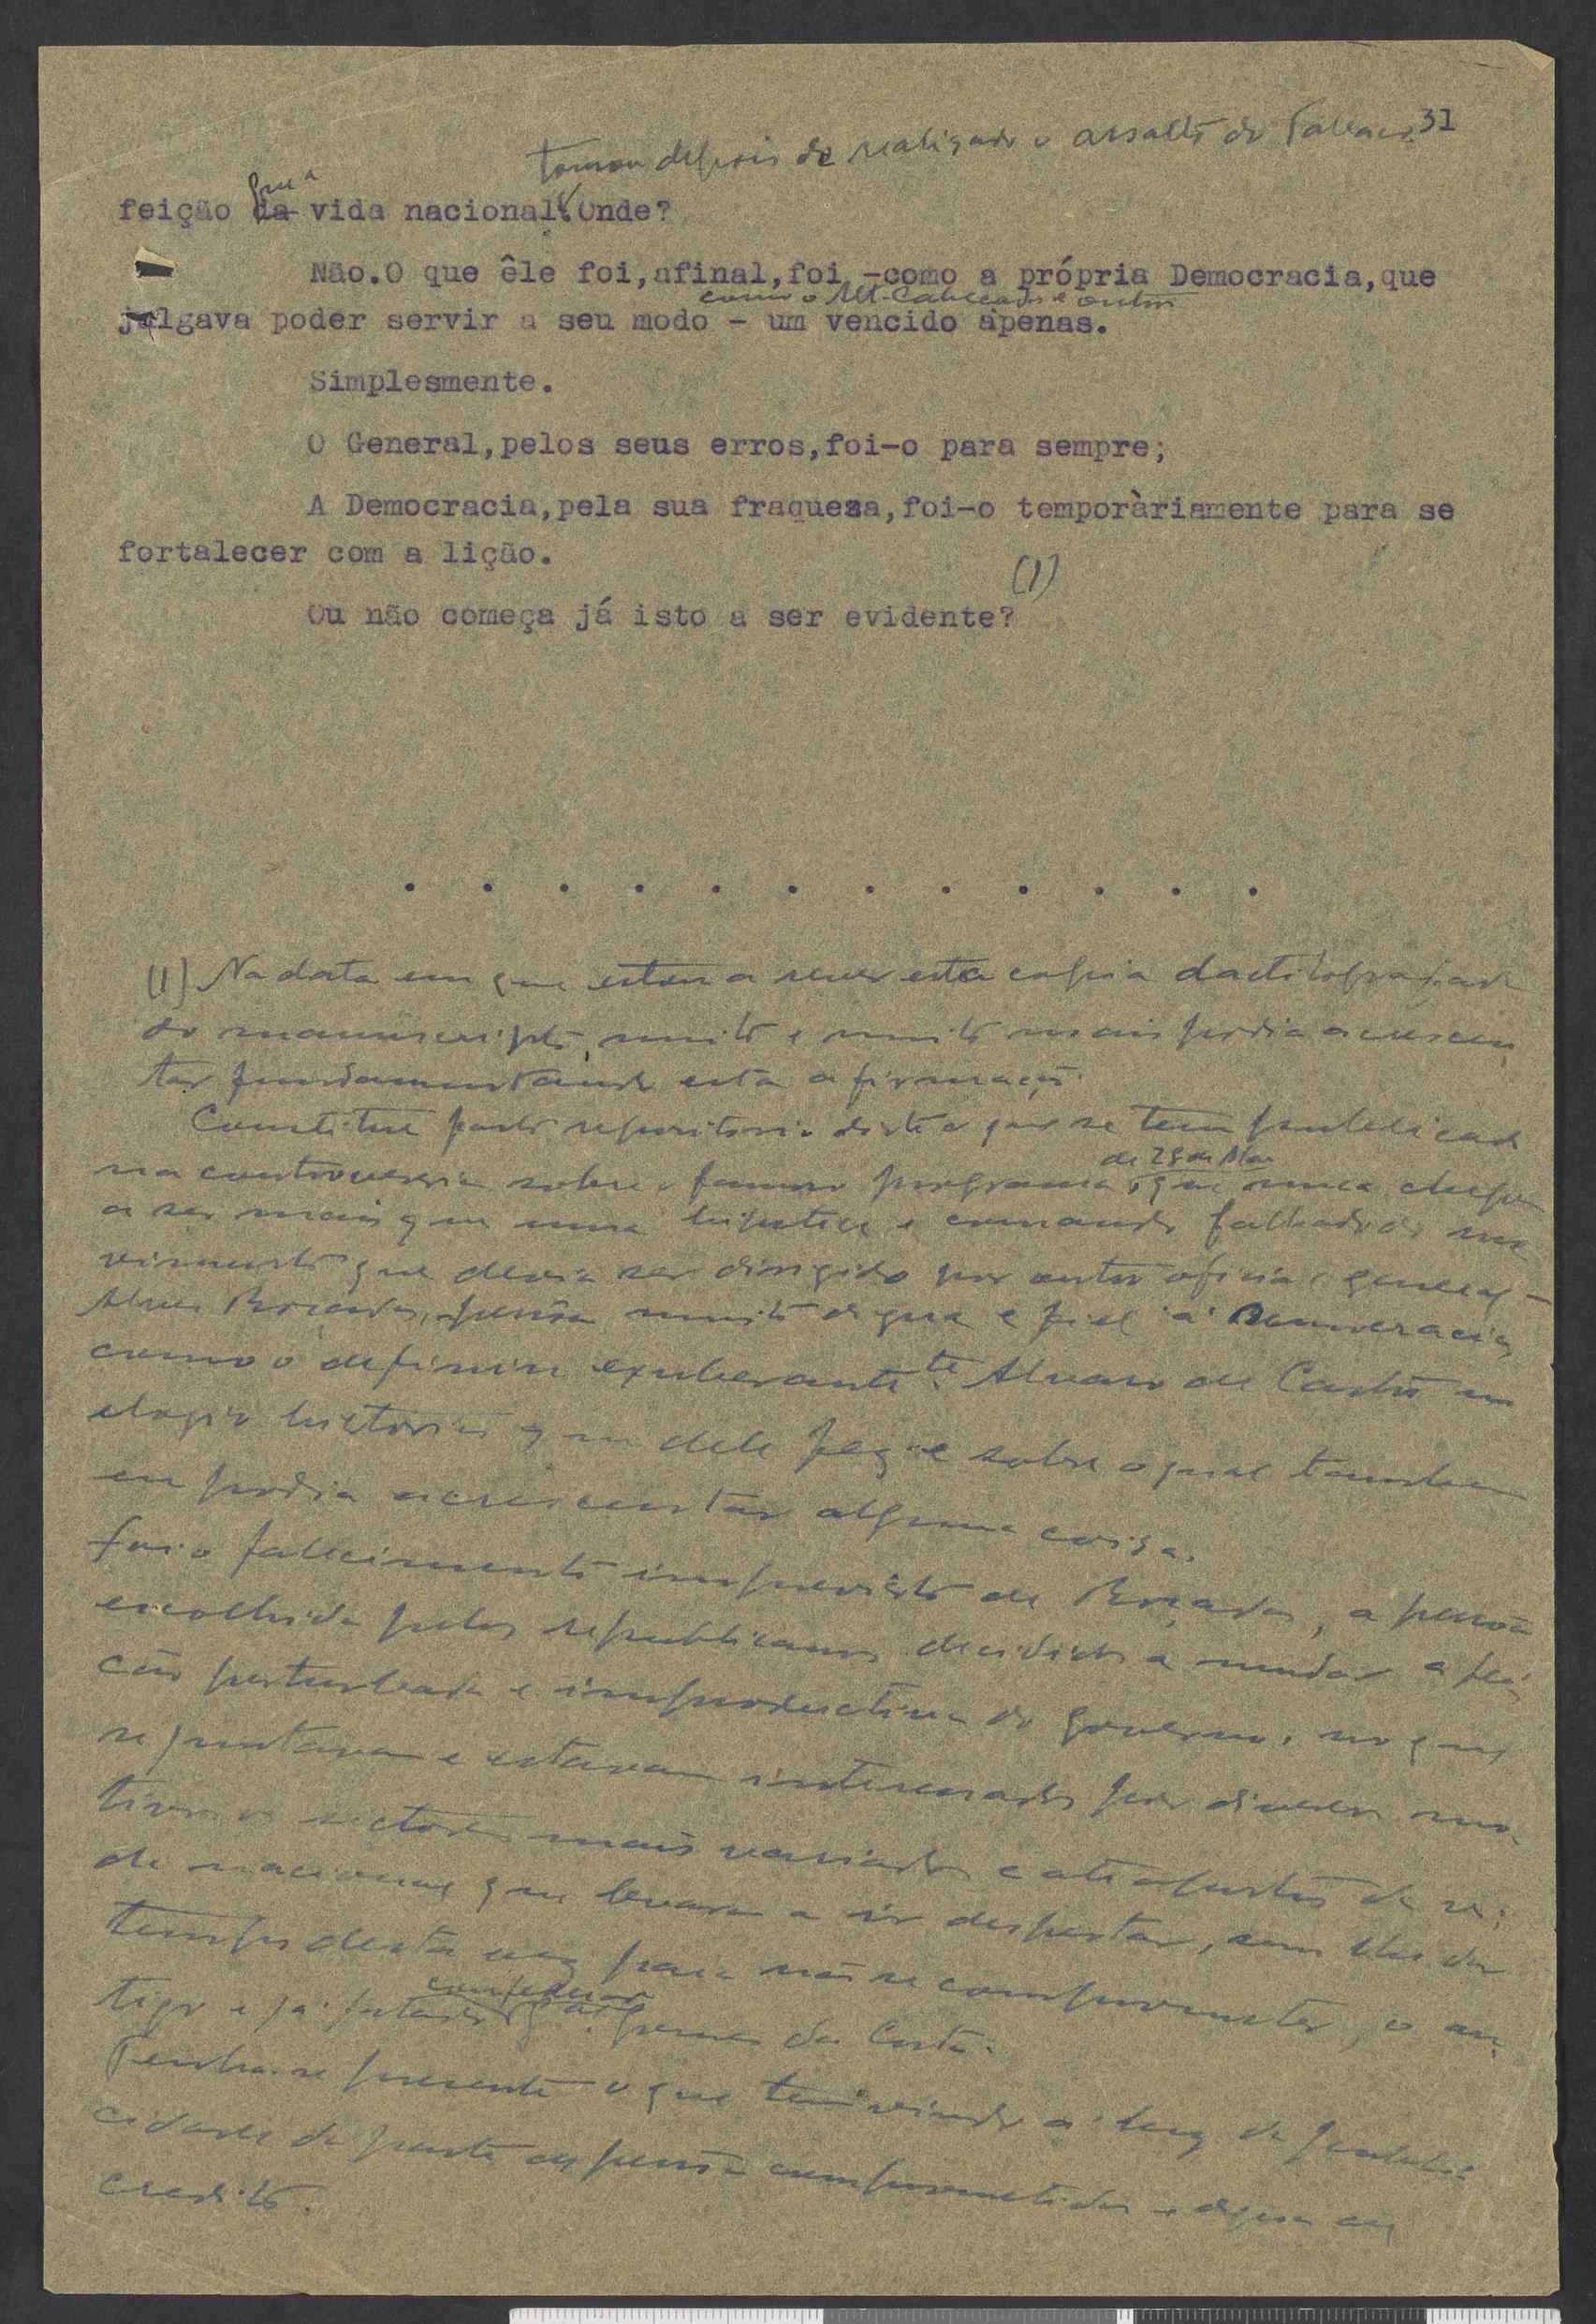 31
tomou depois de realizado o assalto do
que a
feição da vida nacional. Onde?
Não.O que êle foi,afinal,foi -como a própria Democracia,que
como o Alt. Cabeçadas e outros
julgava poder servir a seu modo - um vencido apenas.
Simplesmente.
O General,pelos seus erros,foi-o para sempre;
A Democracia,pela sua fraqueza,foi-o temporàriamente para se
fortalecer com a lição.
(1)
Ou não começa já isto a ser evidente?
. . . . . . . . . . . .
(1) Na data em que estou a rever esta copia dactilografada
do manuscripto, muito e muito mais podia acrescen
tar fundamentando esta afirmação.
Constitue farto repositorio disto o que se tem publicado
de 28 de Maio
na controversia sobre o famoso programa, que nunca chegou
a ser mais que uma e comando falhado do mo
vimento que devia ser dirigido por outro oficial general -
Alves Roçadas, pessôa muito digna e fiel á Democracia,
como o definiu exuberantete. Alvaro de Castro no
elogio historico que dele fez e sobre o qual tambem
eu podia acrescentar alguma coisa.
Foi o falecimento imprevisto de Roçadas, a pessôa
escolhida pelos republicanos decididos a mudar a fei,
ção perturbada e improductiva do governo, no que
se e estavam interessados por diversos mo
tivos os sectores mais variados e até opostos da
de nacional que levaram a ir despertar, sem lhe dar
tempo desta vez para não se comprometer, o an,
tigo e já Gomes da Costa.
Tenha-se presente o que tem vindo a luz da publi
cidade da parte de pessôas comprometidas e dignas de
credito.